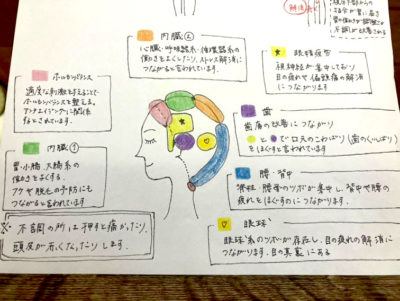 解消
不調が改善される
内臓②
心臓・呼吸器系・循環器系の
働きをよくしたり、ストレス解消に
つながると言われています。
★ 眼精疲労
視神経が集中しており
目の疲れや偏頭痛の解消
につながります
ホルモンバランス
適度な刺激を与えることで
ホルモンバランスを整える。
アンチエイジングにも関係
有りとされています。
歯
歯痛の改善につながり
●と●で口元のこわばり(歯のくいしばり)
をほぐすと言われています
内臓①
胃・小腸・大腸系の
働きをよくする。
フケや脱毛の予防にも
つながると言われています
腰・背中
脊柱・腰骨のツボが集中し、背中や腰の
疲れをほぐすのにつながります。
※ 不調の所は押すと痛かったり、
頭皮が赤くなったりします。
♡ 眼球
眼球系のツボが存在し、目の疲れの解消に
つながります。目の真裏にある